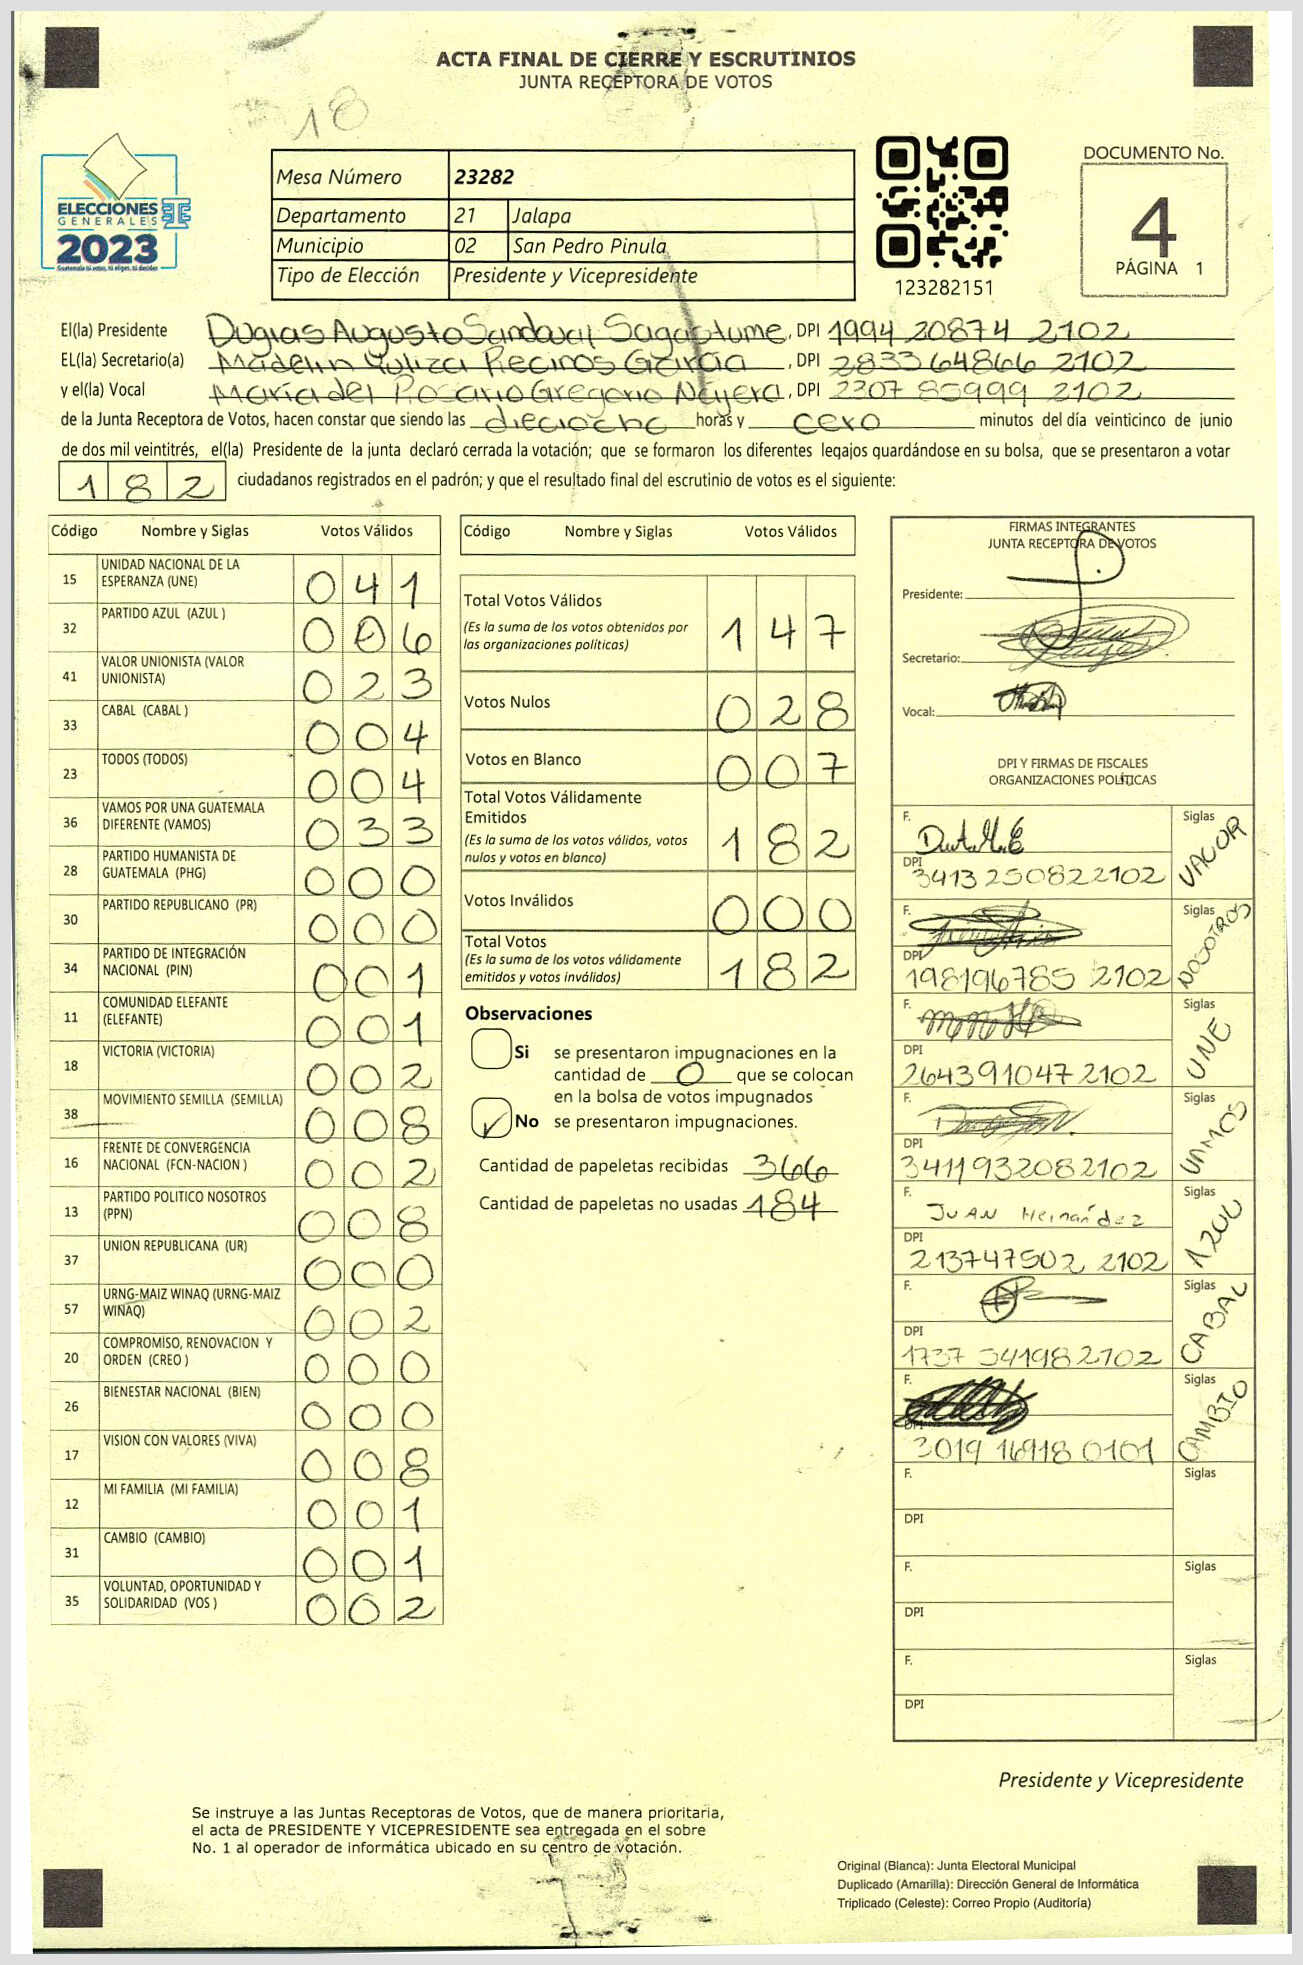 ACTA FINAL DE CIERRE Y ESCRUTINIOS
JUNTA RECEPTORA DE VOTOS
18
ELECCIONES
GENERALES
2023
Guatemala tú votas, tú eliges, tú decides
Mesa Número 23282
Departamento 21 Jalapa
Municipio 02 San Pedro Pinula
Tipo de Elección Presidente y Vicepresidente
123282151
DOCUMENTO No.
4
PÁGINA 1
El(la) Presidente Duglas Augusto Sandoval Sagastume, DPI 1994 20874 2102
EL(la) Secretario(a) Madelin Yuliza Recinos García, DPI 2833 64866 2102
y el(la) Vocal María del Rosario Gregorio Nájera, DPI 2307 85999 2102
de la Junta Receptora de Votos, hacen constar que siendo las dieciocho horas y cero minutos del día veinticinco de junio
de dos mil veintitrés, el(la) Presidente de la junta declaró cerrada la votación; que se formaron los diferentes legajos guardándose en su bolsa, que se presentaron a votar
182 ciudadanos registrados en el padrón; y que el resultado final del escrutinio de votos es el siguiente:
Código Nombre y Siglas Votos Válidos
15 UNIDAD NACIONAL DE LA ESPERANZA (UNE) 041
32 PARTIDO AZUL (AZUL ) 006
41 VALOR UNIONISTA (VALOR UNIONISTA) 023
33 CABAL (CABAL ) 004
23 TODOS (TODOS) 004
36 VAMOS POR UNA GUATEMALA DIFERENTE (VAMOS) 033
28 PARTIDO HUMANISTA DE GUATEMALA (PHG) 000
30 PARTIDO REPUBLICANO (PR) 000
34 PARTIDO DE INTEGRACIÓN NACIONAL (PIN) 001
11 COMUNIDAD ELEFANTE (ELEFANTE) 001
18 VICTORIA (VICTORIA) 002
38 MOVIMIENTO SEMILLA (SEMILLA) 008
16 FRENTE DE CONVERGENCIA NACIONAL (FCN-NACION ) 002
13 PARTIDO POLITICO NOSOTROS (PPN) 008
37 UNION REPUBLICANA (UR) 000
57 URNG-MAIZ WINAQ (URNG-MAIZ WINAQ) 002
20 COMPROMISO, RENOVACION Y ORDEN (CREO ) 000
26 BIENESTAR NACIONAL (BIEN) 000
17 VISION CON VALORES (VIVA) 008
12 MI FAMILIA (MI FAMILIA) 001
31 CAMBIO (CAMBIO) 001
35 VOLUNTAD, OPORTUNIDAD Y SOLIDARIDAD (VOS ) 002
Código Nombre y Siglas Votos Válidos
Total Votos Válidos 147
(Es la suma de los votos obtenidos por
las organizaciones políticas)
Votos Nulos 028
Votos en Blanco 007
Total Votos Válidamente
Emitidos 182
(Es la suma de los votos válidos, votos
nulos y votos en blanco)
Votos Inválidos 000
Total Votos 182
(Es la suma de los votos válidamente
emitidos y votos inválidos)
Observaciones
Si se presentaron impugnaciones en la
cantidad de 0 que se colocan
en la bolsa de votos impugnados
No se presentaron impugnaciones.
Cantidad de papeletas recibidas 366
Cantidad de papeletas no usadas 184
FIRMAS INTEGRANTES
JUNTA RECEPTORA DE VOTOS
Presidente:
Secretario:
Vocal:
DPI Y FIRMAS DE FISCALES
ORGANIZACIONES POLÍTICAS
F. Siglas VALOR
DPI 3413 250822102
F. Siglas NOSOTROS
DPI 198196785 2102
F. Siglas UNE
DPI 264391047 2102
F. Siglas VAMOS
DPI 3411932082102
F. JUAN Hernández Siglas AZUL
DPI 213747502 2102
F. Siglas CABAL
DPI 1737 341982102
F. Siglas CAMBIO
DPI 3019 16918 0101
F. Siglas
DPI
F. Siglas
DPI
F. Siglas
DPI
Presidente y Vicepresidente
Se instruye a las Juntas Receptoras de Votos, que de manera prioritaria,
el acta de PRESIDENTE Y VICEPRESIDENTE sea entregada en el sobre
No. 1 al operador de informática ubicado en su centro de votación.
Original (Blanca): Junta Electoral Municipal
Duplicado (Amarilla): Dirección General de Informática
Triplicado (Celeste): Correo Propio (Auditoría)